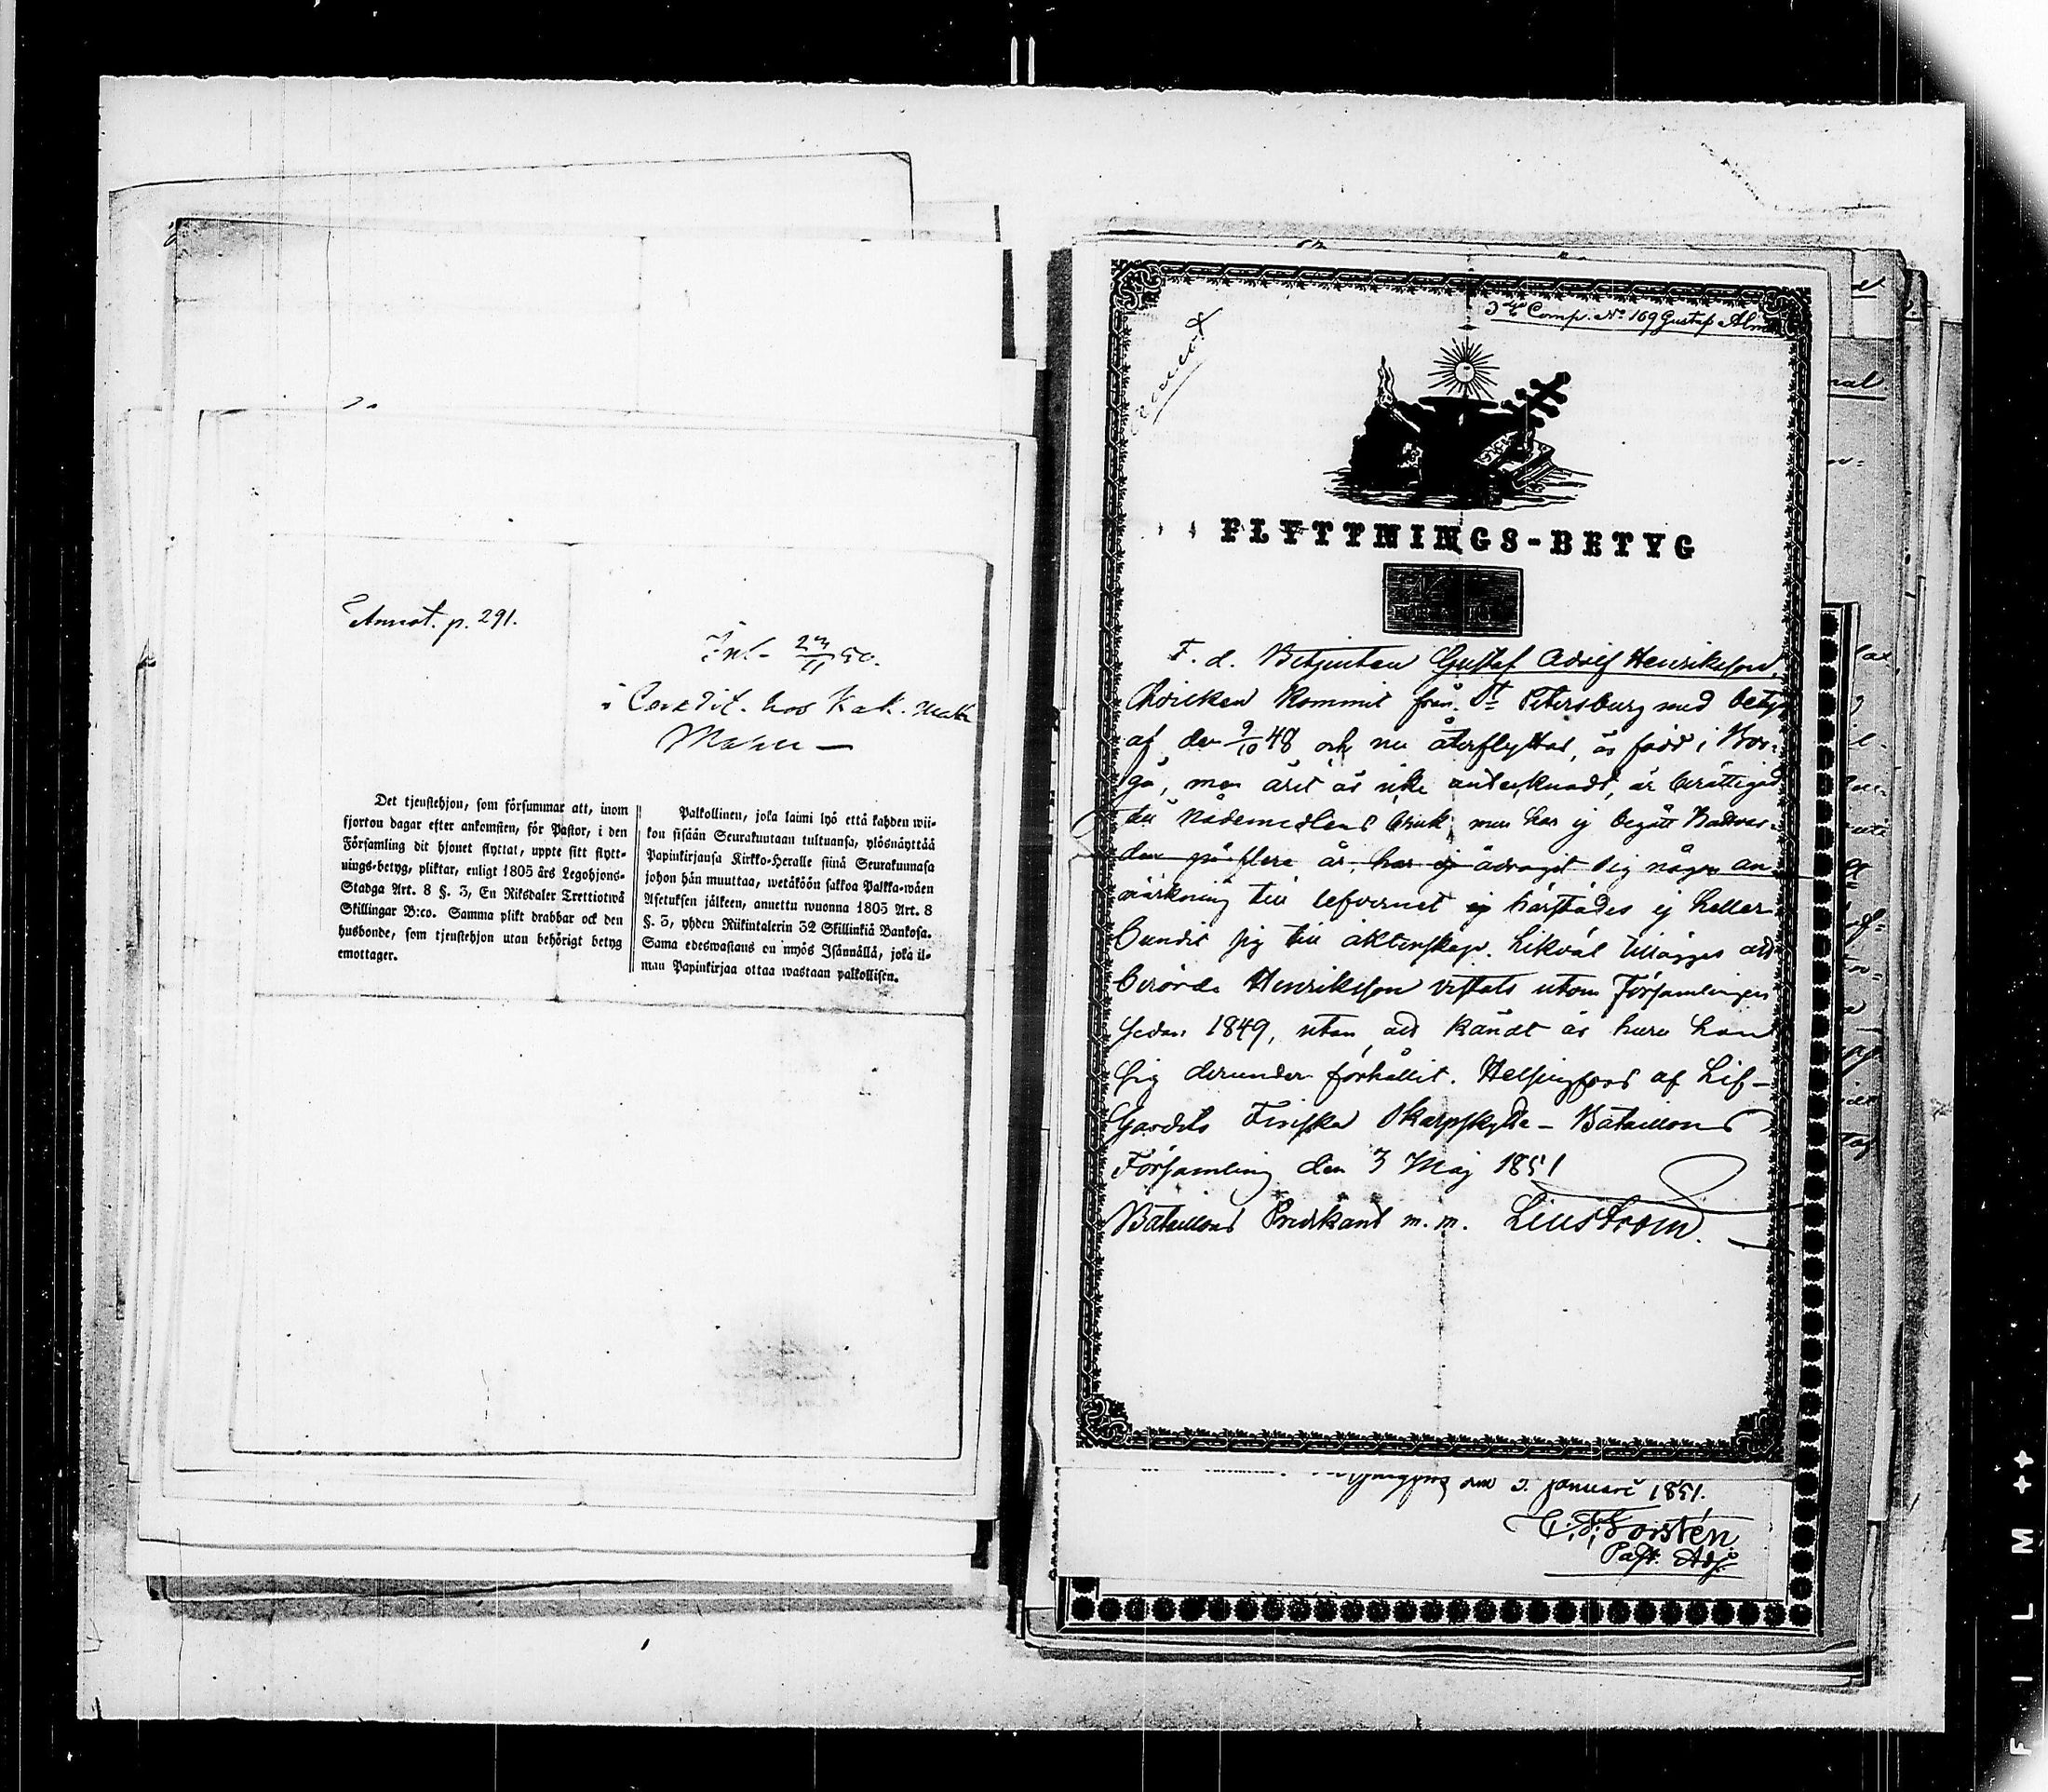 Annot. p. 291.
Inl. 23/11 50.
i Condit. hos Kak. mak
Det tjenstehjon, som försummar att, inom
fjorton dagar efter ankomsten, för Pastor, i den
Församling dit hjonet flyttat, uppte sitt flytt-
nings-betyg, pliktar, enligt 1805 års Legohjons-
Stadga Art. 8 §. 3, En Riksdaler Trettiotwå
Skillingar B:co. Samma plikt drabbar ock den
husbonde, som tjenstehjon utan behörigt betyg
emottager.
Palkollinen, joka laimi lyö että kahden wii-
kon sisään Seurakuntaan tultuansa, ylösnäyttää
Papinkirjansa Kirkko-Heralle siinä Seurakunnasa
johon hän muuttaa, wetäköön sakkoa Palkka-wäen
Asetuksen jälkeen, annettu wuonna 1805 Art. 8
§. 3, yhden Riikintalerin 32 Skillinkiä Bankosa.
Sama edeswastaus on myös Isännällä, joka il-
man Papinkirjaa ottaa wastaan palkollisen.
3dje Comp. No 169 Gustaf Alm
Annot
FLYTTNINGS-BETYG
F. d. Betjenten Gustaf Adolf Henriksson,
hvilken kommit från St Petersburg med betyg
af den 9/10 48 och nu återflyttar, är född i Bor-
gå, men året är icke antecknadt, är berättigad
till Nådemedlens bruk, men har ej begått Nattvar-
den på flera år, har ej ådragit sig någon an-
märkning till lefvernet ej härstädes ej heller
bundit sig till äktenskap. Likväl tillägges att
berörde Henriksson vistats utom Församlingen
sedan 1849, utan att kändt är huru han
sig derunder förhållit. Helsingfors af Lif-
Gardets Finska Skarpskytte-Bataillons
Församling den 3 Maj 1851
Bataillons Predikant m. m. Liustrom.
den 3. januari 1851.
Forstén
Past. Adj.
FILM